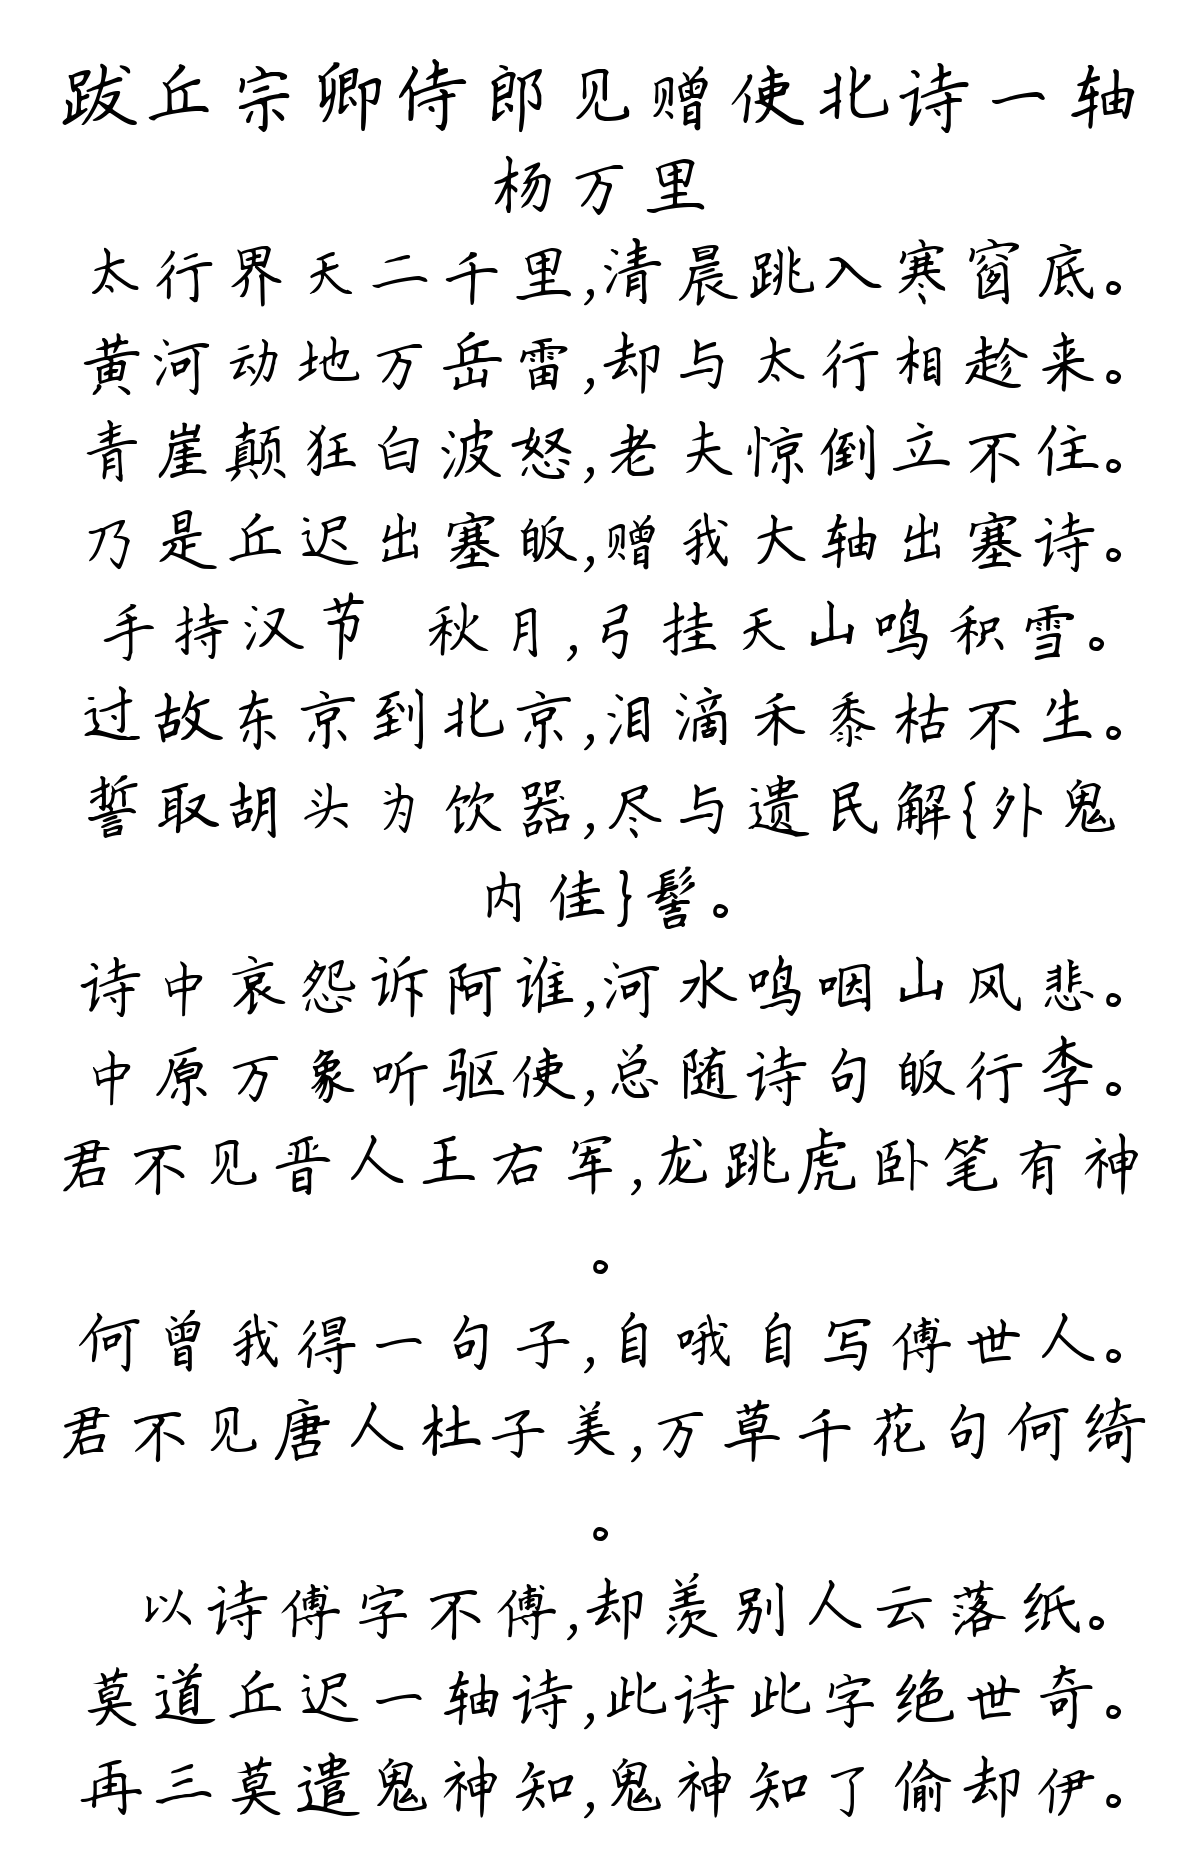 跋丘宗卿侍郎见赠使北诗一轴
杨万里
太行界天二千里,清晨跳入寒窗底。
黄河动地万岳雷,却与太行相趁来。
青崖颠狂白波怒,老夫惊倒立不住。
乃是丘迟出塞皈,赠我大轴出塞诗。
手持汉节 秋月,弓挂天山鸣积雪。
过故东京到北京,泪滴禾黍枯不生。
誓取胡头为饮器,尽与遗民解{外鬼
内佳}髻。
诗中哀怨诉阿谁,河水鸣咽山风悲。
中原万象听驱使,总随诗句皈行李。
君不见晋人王右军,龙跳虎卧笔有神
。
何曾我得一句子,自哦自写傅世人。
君不见唐人杜子美,万草千花句何绮
。
以诗傅字不傅,却羡别人云落纸。
莫道丘迟一轴诗,此诗此字绝世奇。
再三莫遣鬼神知,鬼神知了偷却伊。